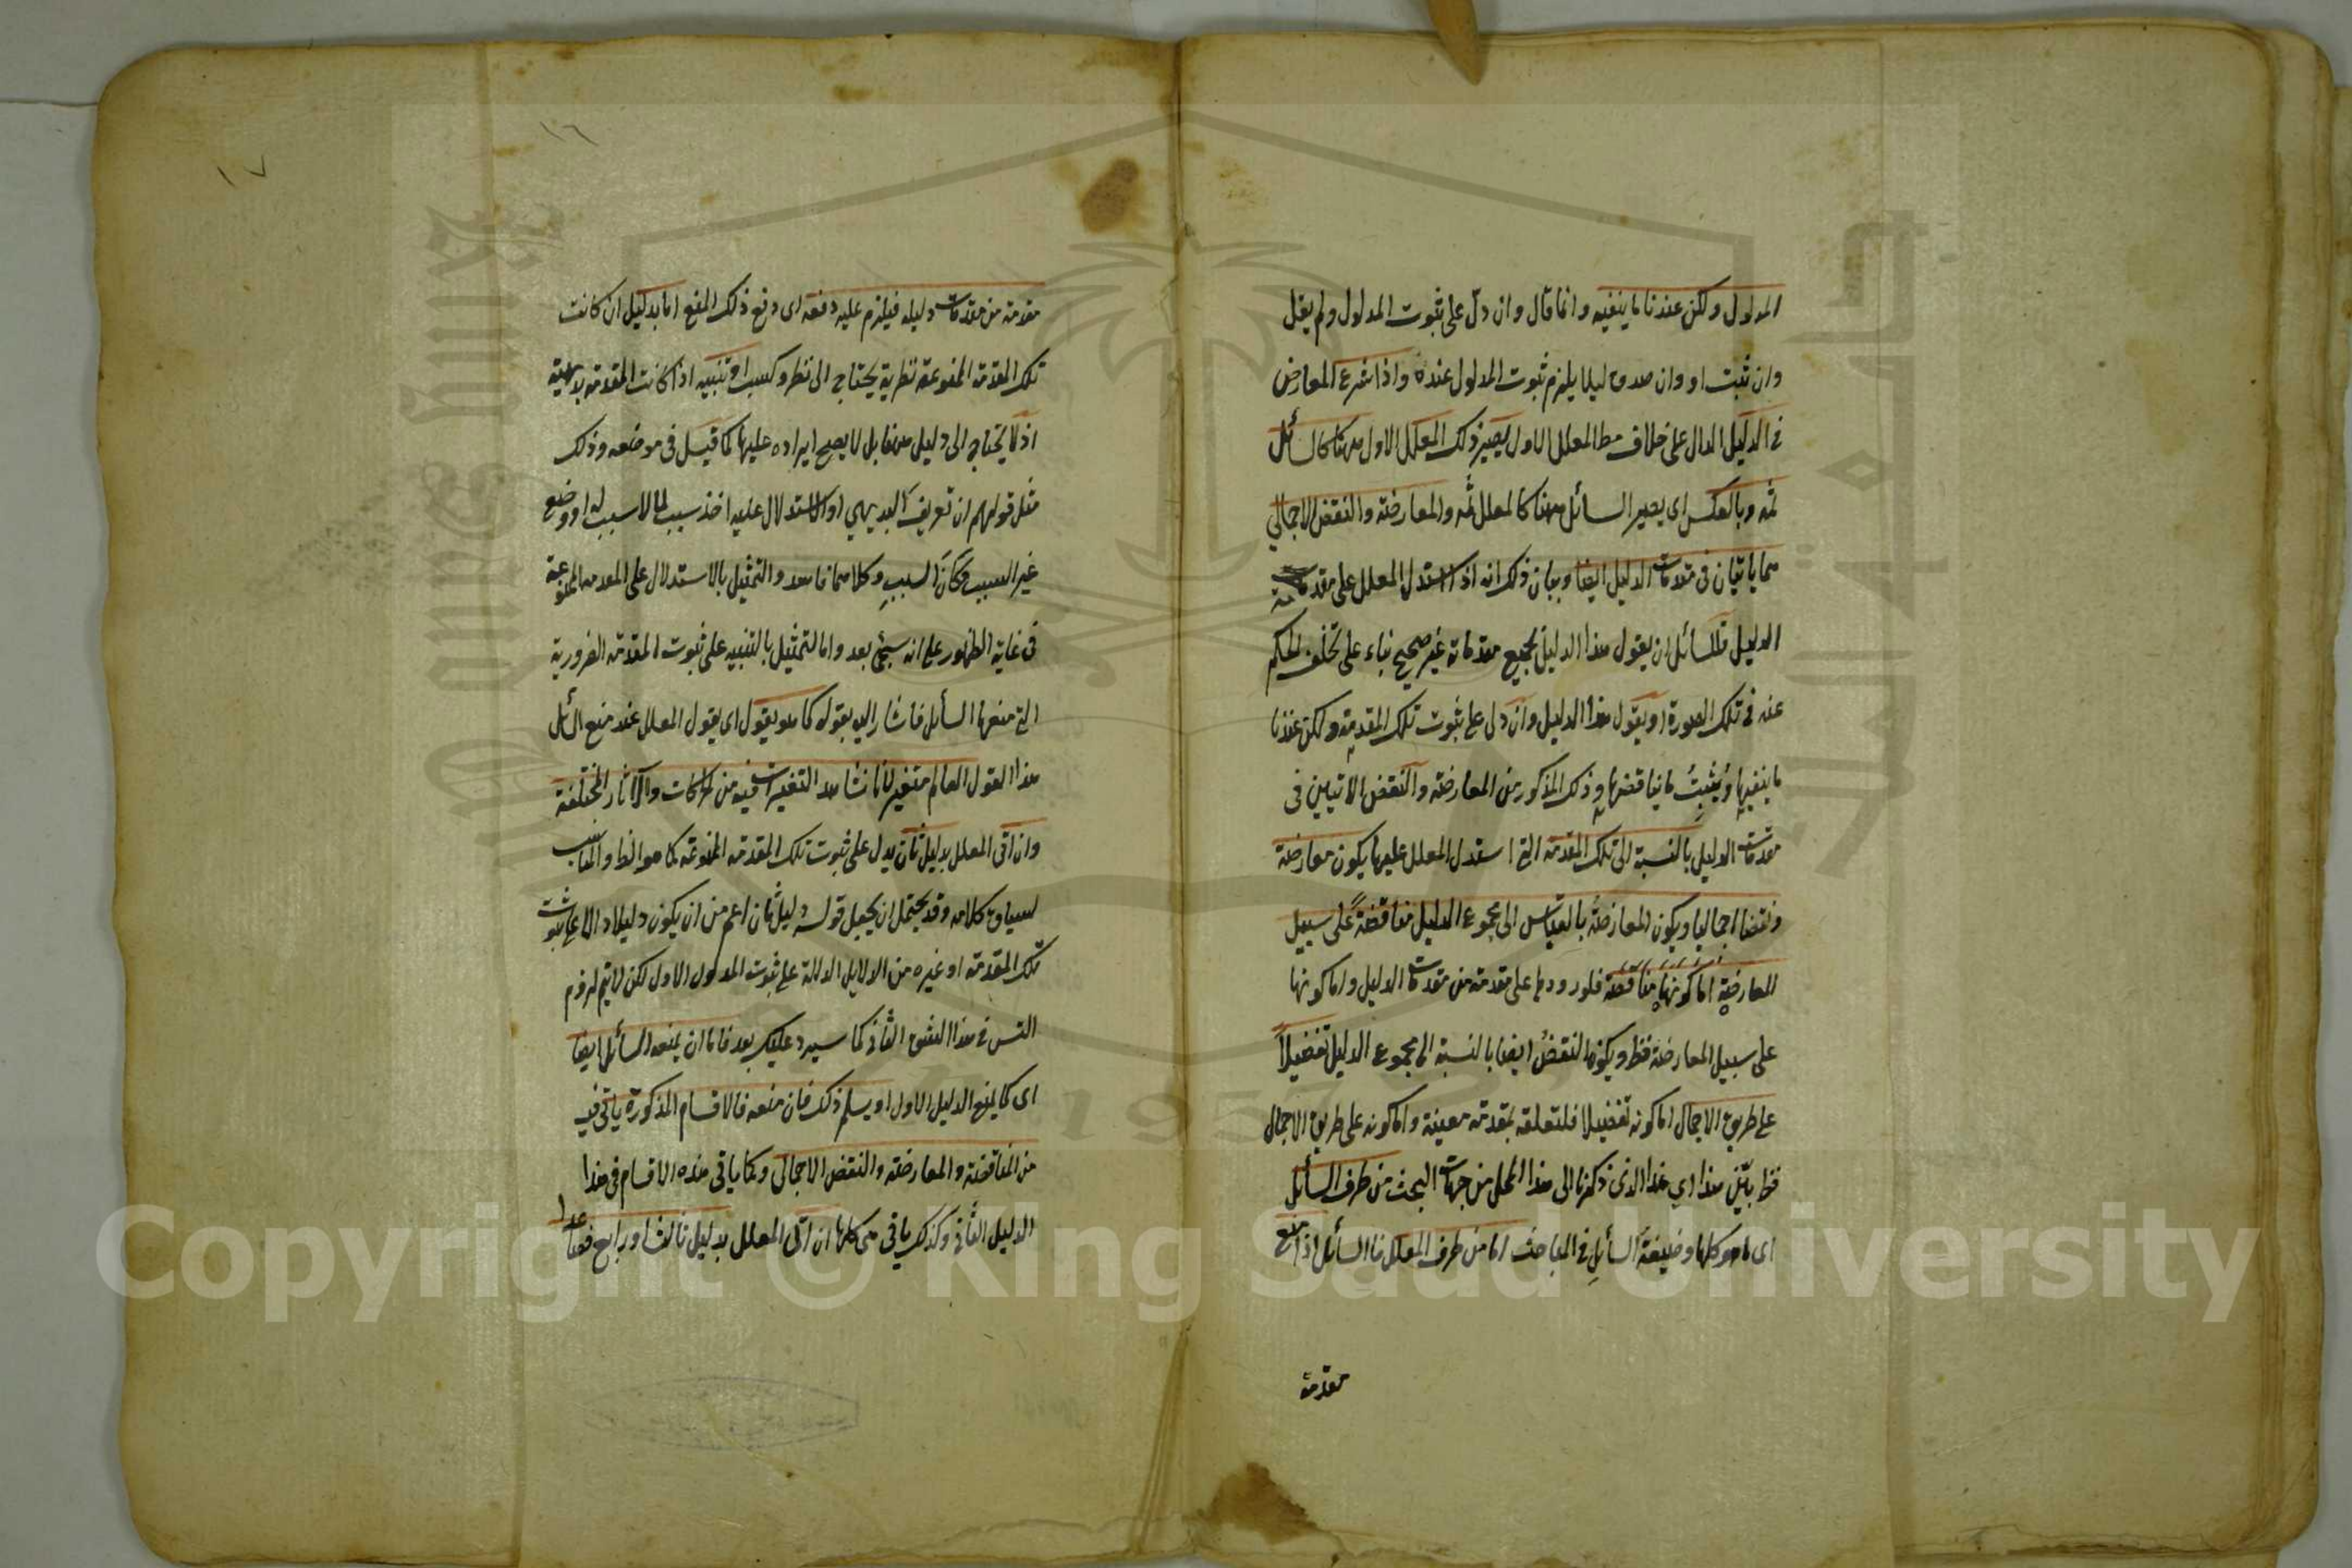 المدلول ولكن عندنا ما ينفيه وانما قال وان دل على ثبوت المدلول ولم يقل
وان ثبت او وان صدق ليلا يلزم ثبوت المدلول عنده واذا شرع المعارض
في الدليل الدال على خلاف مط المعلل الاول يصير ذلك المعلل الاول ههنا كالسائل
ثمه وبالعكس اى يصير السائل ههنا كالمعلل ثمه والمعارضة والنقض الاجمالي
هما ياتيان في مقدمات الدليل ايضا وبيان ذلك انه اذا استدل المعلل على مقدمة
الدليل فللسائل ان يقول هذا الدليل بجميع مقدماته غير صحيح بناء على تخلف الحكم
عنه في تلك الصورة او يقول هذا الدليل وان دل على ثبوت تلك المقدمة ولكن عندنا
ما ينفيها ويثبت ما يناقضها وذلك المذكور من المعارضة والنقض الاتيين في
مقدمات الدليل بالنسبة الى تلك المقدمة التي استدل المعلل عليها يكون معارضة
ونقضا اجماليا ويكون المعارضة بالقياس الى مجموع الدليل مناقضة على سبيل
المعارضة اما كونها مناقضة فلورودها على مقدمة من مقدمات الدليل واما كونها
على سبيل المعارضة فظ ويكون النقض ايضا بالنسبة الى مجموع الدليل تفضيلا
على طريق الاجمال اما كونه تفضيلا فلتعلقه بمقدمة معينة واما كونه على طريق الاجمال
فظ بين هذا اي هذا الذى ذكرنا الى هذا المحل من جهات البحث من طرف السائل
اى ما هو كلها وضيفة السائل في المباحث اما من طرف المعلل فالسائل اذا منع
مقدمة
١٦
١٧
مقدمة من مقدمات دليله فيلزم عليه دفعه اى دفع ذلك المنع اما بدليل ان كانت
تلك المقدمة الممنوعة نظرية يحتاج الى نظر وكسب او تنبيه اذا كانت المقدمة بديهية
اذ لا يحتاج الى دليل من قابل لا يصح ايراده عليها كما قيل في موضعه وذلك
مثل قولهم ان تعريف البديهي او الاستدلال عليه اخذ سبب لما لا سبب له او وضع
غير السبب مكان السبب وكلاهما فاسد والتمثيل بالاستدلال على المقدمه الممنوعة
في غاية الظهور على انه سيجئ بعد واما التمثيل بالتنبيه على ثبوت المقدمة الضرورية
التي منعها السائل فاشار اليه بقوله كما هو يقول اى يقول المعلل عند منع السائل
هذا القول العالم متغير لانا نشاهد التغيرات فيه من الحركات والآثار المختلفة
وان اتى المعلل بدليل ثان يدل على ثبوت تلك المقدمة الممنوعة كما هو الظ والمناسب
لسياق كلامه وقد يحتمل ان يجعل قوله دليل ثان اعم من ان يكون دليلا دالا على ثبوت
تلك المقدمة او غيره من الدلايل الدالة على ثبوت المدلول الاول لكن لا يتم لزوم
التس في هذا الشق الثاني كما سيرد عليك بعد فاما ان يمنعه السائل ايضا
اى كما يمنع الدليل الاول او يسلم ذلك فان منعه فالاقسام المذكورة ياتي فيه
من المناقضة والمعارضة والنقض الاجمالى وكما ياتي هذه الاقسام في هذا
الدليل الثاني وكذلك ياتي هى كلها ان اتى المعلل بدليل ثالث او رابع فصاعدا
Copyright © King Saud University